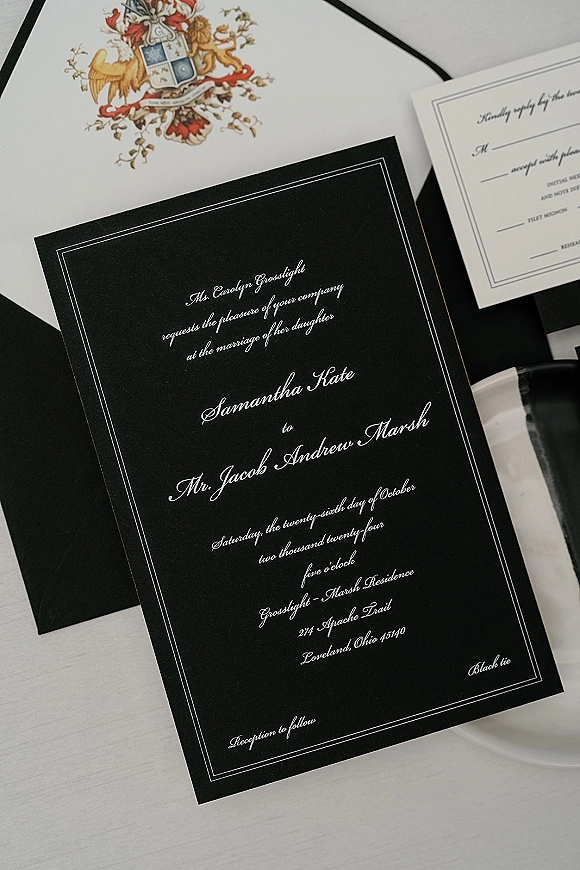 Ms. Carolyn Grosslight
requests the pleasure of your company
at the marriage of her daughter
Samantha Kate
to
Mr. Jacob Andrew Marsh
Saturday, the twenty-sixth day of October
two thousand twenty-four
five o'clock
Grosslight – Marsh Residence
274 Apache Trail
Loveland, Ohio 45140
Black tie
Reception to follow
Kindly reply by the
M
accept with
INITIAL
AND NOTE
FILET MIGNON